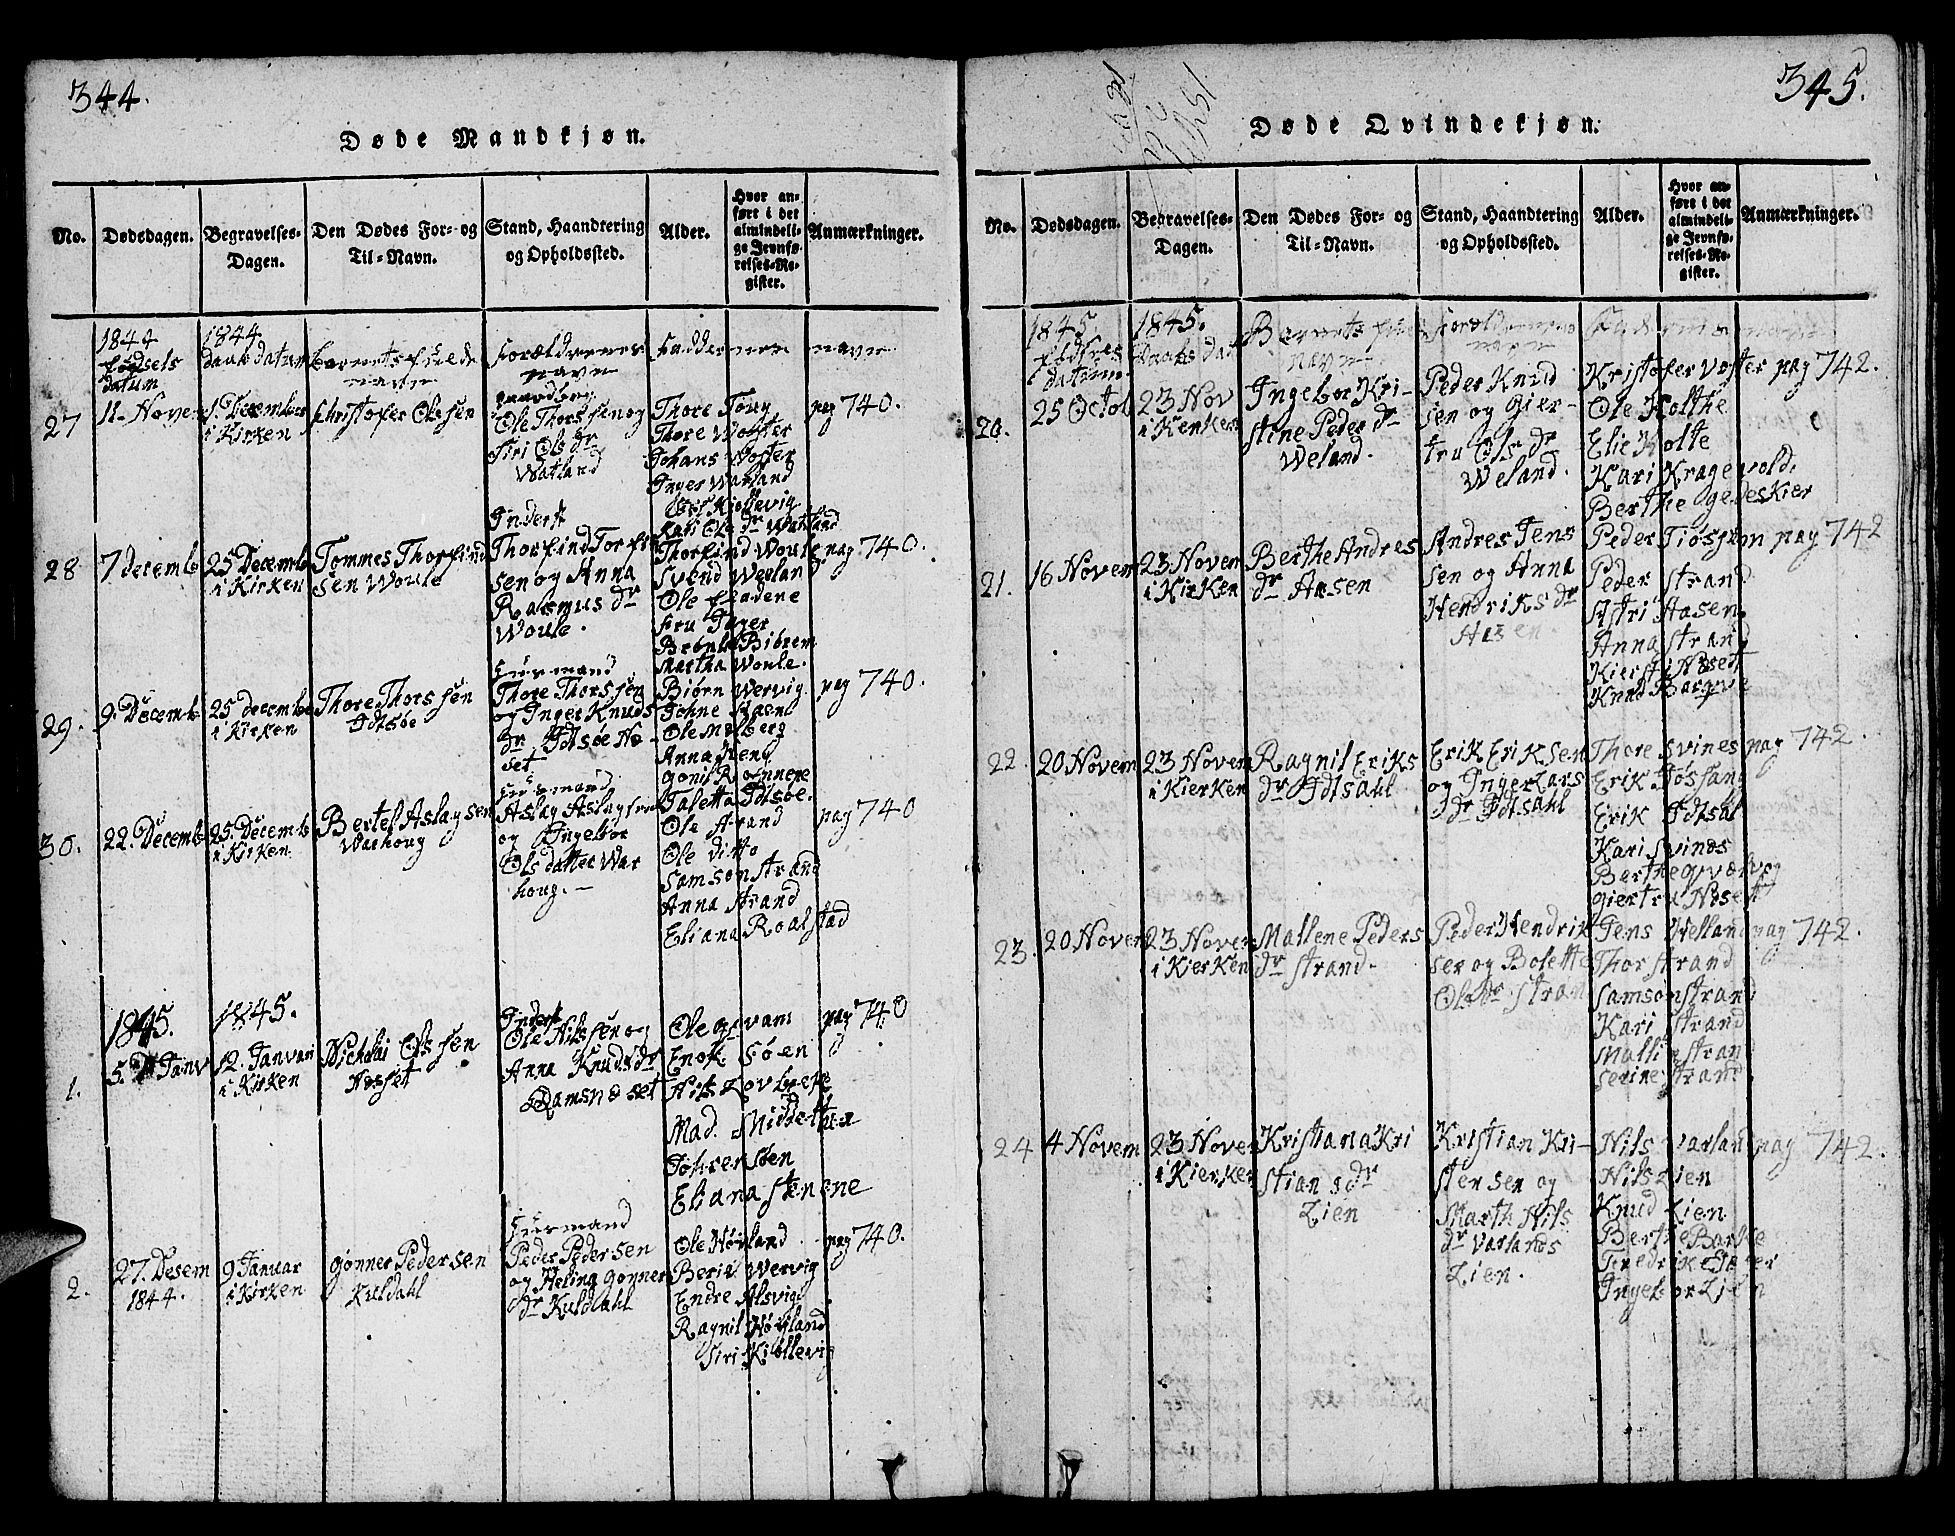 344.
Døde Mandkjøn.
No. Dødsdagen. Begravelses-Dagen. Den Dødes For- og Til-Navn. Stand, Haandtering og Opholdssted. Alder. Hvor anført i det almindelige Jevnførelses-Register. Anmærkninger.
1844 fødsels datum
1844 daabsdatum
barnets fulde navn
forældrenes navn
faddernen navn
27
11- Novem
1. December i Kirken
Christofer Olssen
gaardbrg
Ole Thorssen og
Siri Ols dr
Watland
Thore Toug
Thore Wolter
Johans Woster
Inger Watland
Kari Ole dr Watland
pag 740.
28
7 decemb
25 Decemb i Kirken
Tommes Thorfind
sen Woule
Inderst
Thorfind Torfin
sen og Anna
Rasmus dr
Woule.
Thorfind Woule
Svend Weslan
Ole fladene
fru Inger
Martha Woule.
pag 740.
29.
9. Decemb
25 decemb i Kirken
Thore Thorssen
Idtsøe
Huusmand
Thore Thorssen
og Inger Knuds
dr Idtsøe Nø-
set
Biørn Wervig
Johne Aasen
Ole Molberg
Anna
Gonil Rønnere
Taletta Idtsøe.
pag 740.
30.
22. Decemb
25. Decemb i Kirken
Bertel Aslagsen
Warhoug
Huusmand
Aslag Aslagsen
og Ingebor
Olsdatter War
houg. -
Ole strand
Ole ditto
Samson strand
Anna strand
Eliana Roalstad
pag 740
1845.
1845.
1.
5. Janv
12. Januari i Kirken
Nicholai Olssen
Nøsset
Inderst
Ole Nilssen og
Anna Knudsdr
Ramsnøset
Ole qvam
Enok Søen
Nils Lovbrecke
Mad. Middelthon
Johren Søen
Eliana stenene
pag 740
2.
27. Desem
1844.
9 Januar i Kirken
gønner Pedersen
Kuldahl
Huusmand
Peder Pedersen
og Heling Gonner
dr Kuldahl
Ole Høvland
Beria Wervig
Endre Alsvig
Ragnil Høyland
Siri Kiøllevig
pag 740.
345.
Døde Qvindekjøn.
No. Dødsdagen. Begravelses-Dagen. Den Dødes For- og Til-Navn. Stand, Haandtering og Opholdssted. Alder. Hvor anført i det almindelige Jevnførelses-Register. Anmærkninger.
1845. fødsels datum
1845. Daabs dat
Barnets fulde navn
forældrenes navn
20.
25 Octob
23 Nov i Kierken
Ingebor Kri-
stine Peder dr
Weland.
Peder Knud
sen og Gier-
tru Ols dr
Weland.
Kristofer Voster
Ole Holthe
Elie Holte
Kari Kragevold.
Berthe Ogedeskier
pag 742.
21.
16 Novem
23 Novem i Kirken
Berthe Andres
dr Aasen
Andres Jens
sen og Anna
Hendriks dr
Aasen.
Peder Tiøstem
Peder strand
Astri Aasen
Anna strand
Kiersti Nøset
Knud Bargeve
pag 742
22.
20 Novem
23 Novem i Kierken
Ragnil Eriks
dr Idtsahl
Erik Eriksen
og Inger Lars
dr Idtsahl
Thore svines
Erik Tøsang
Erik Idtsal
Kari svines
Berthe qværvog
giertru Nøset
pag 742.
23.
20 Novem
23 Novem i Kierken
Mallene Peders
dr strand-
Peder Hendrik
sen og Bolette
Ols dr stran
Jens Welland
Thor strand
Samson strand
Kari strand
Malli strand
Serine strand
pag 742.
24
4 Novem
23 Novem i Kierken
Kristiana Kri
stians dr
Lien
Kristian Kri-
stensen og
Marth Nils
dr Varlands
Lien.
Nils varland
Nils Lien
Knud Lien
Berthe Barke
Fredrike Støver
Ingebor Lien
pag 742.